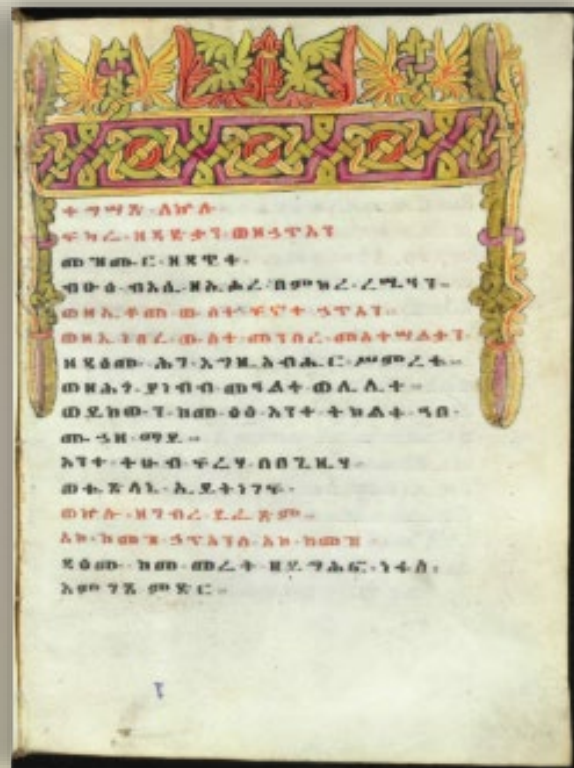 ተማሣጽ፡ ለኵሉ
ፍካሬ፡ ዘጻድቃን፡ ወዘኃጥአን
መዝሙር፡ ዘዳዊት፡
ብፁዕ፡ ብእሲ፡ ዘኢሖረ፡ በምክረ፡ ረሲዓን።
ወዘኢቆመ፡ ውስተ፡ ፍኖተ፡ ኃጥአን።
ወዘኢነበረ፡ ውስተ፡ መንበረ፡ መስተሣልቃን፡
ዘዳዕሙ፡ ሕገ፡ እግዚአብሔር፡ ሥምረቱ።
ወዘሕጎ፡ ያነብብ፡ መዓልተ፡ ወሌሊተ።
ወይከውን፡ ከመ፡ ዕፅ፡ እንተ፡ ትክልት፡ ኀበ፡
ሙኃዘ፡ ማይ።
እንተ፡ ትሁብ፡ ፍሬሃ፡ በበጊዜሃ፡
ወቈጽላኒ፡ ኢይትነገፍ፡
ወኵሎ፡ ዘገብረ፡ ይፌጽም።
አኮ፡ ከመዝ፡ ኃጥአንሰ፡ አኮ፡ ከመዝ
ዳዕሙ፡ ከመ፡ መሬት፡ ዘይግሕፎ፡ ነፋስ፡
እምገጸ፡ ምድር።